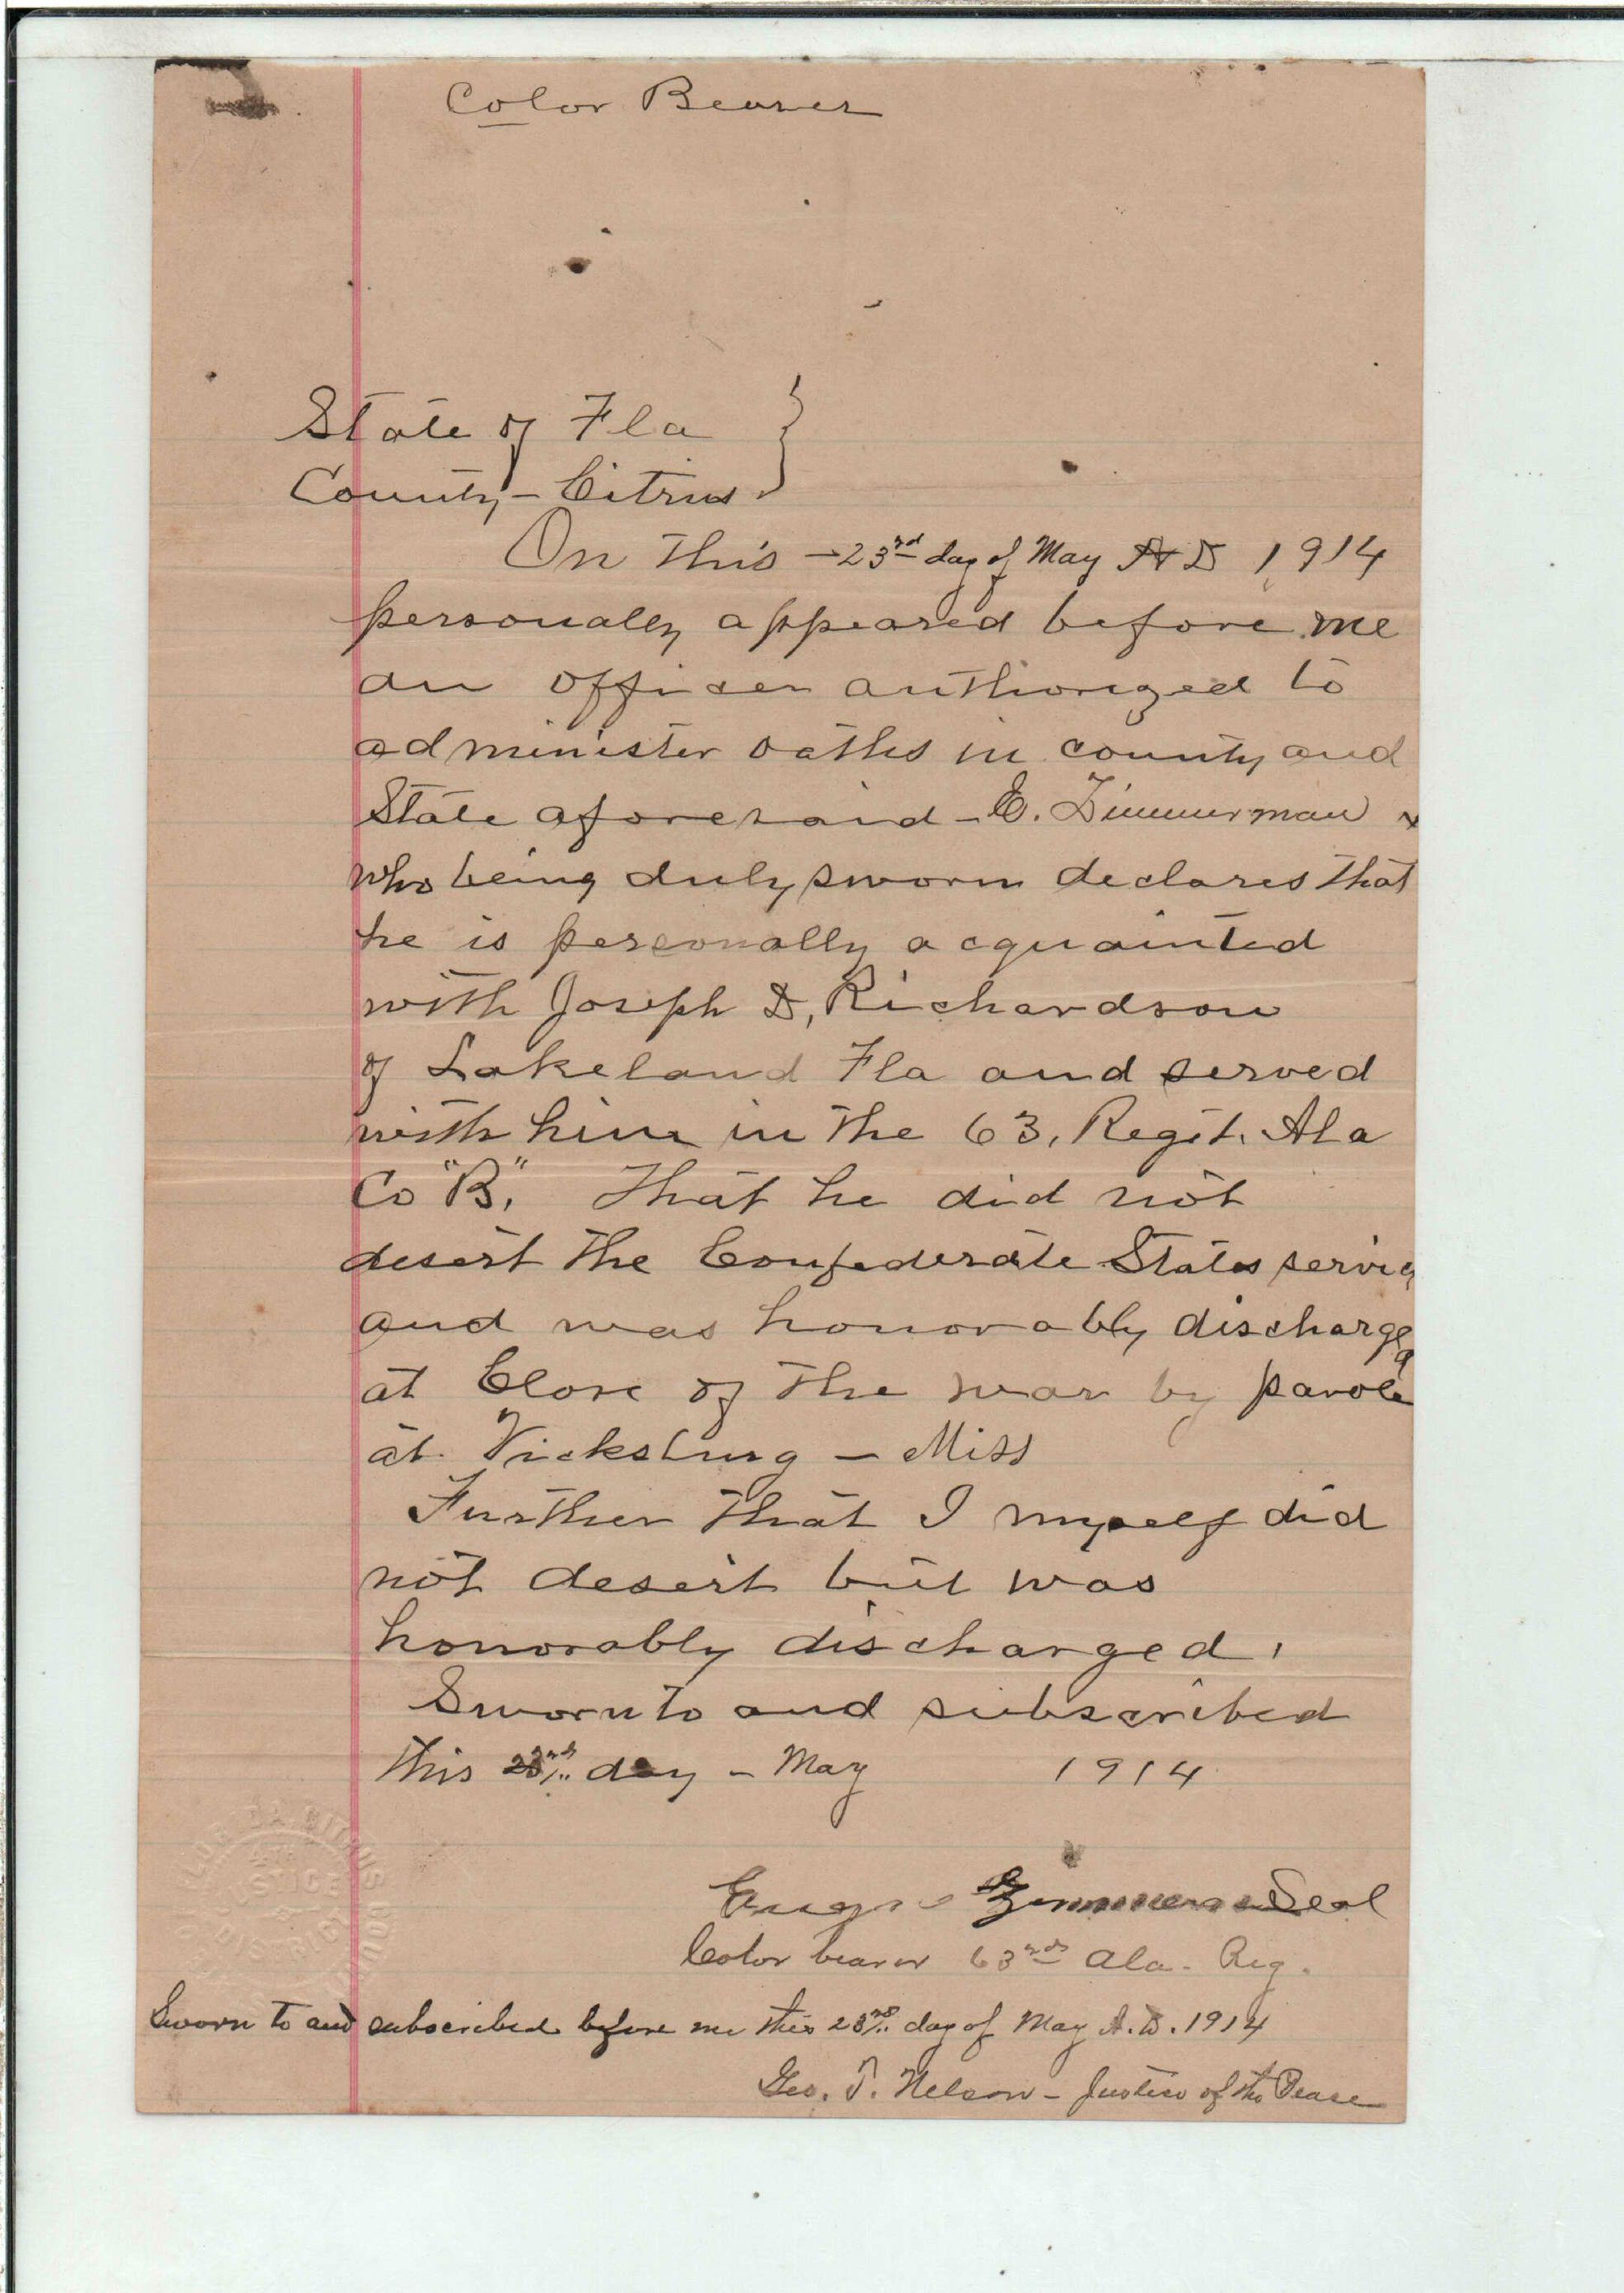 Color Bearer
State of Fla
County - Citrus
On this - 23rd day of May A D 1914
personally appeared before me
an officer authorized to
administer oaths in county and
State aforesaid - E. Zimmerman
who being duly sworn declares that
he is personally acquainted
with Joseph D, Richardson
of Lakeland Fla and served
with him in the 63, Regit. Ala
Co "B". That he did not
desert the Confederate States servic
and was honorably discharged
at Close of the war by parole
at Vicksburg - Miss
Further that I myself did
not desert but was
honorably discharged.
Sworn to and subscribed
this 23rd day - May 1914
Zimmerman Seal
Color bearer 63rd Ala. Reg.
Sworn to and subscribed before me this 23rd day of May A.D. 1914
Geo. T. Nelson - Justice of the Peace
JUSTICE
DISTRICT